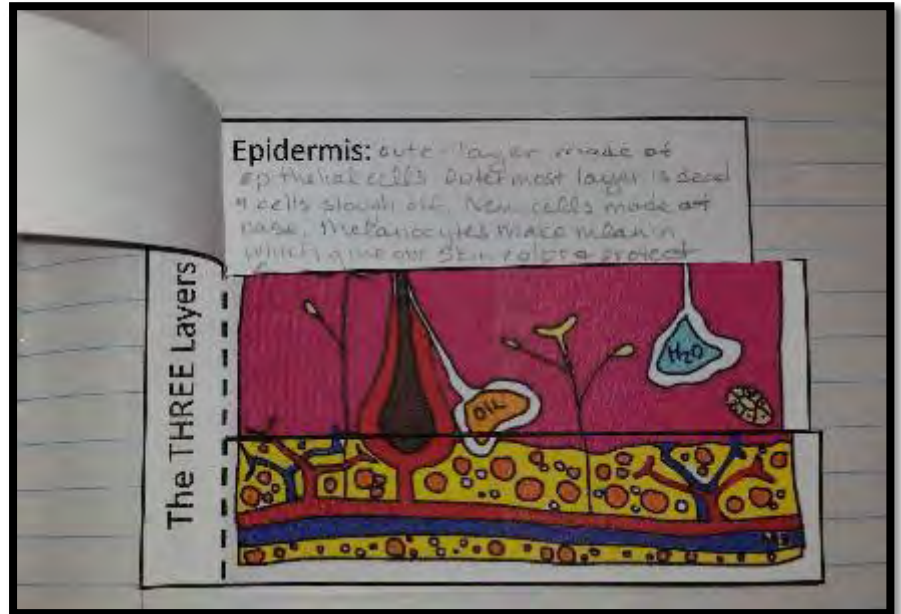 Epidermis: oute layer made of
epthelial cells Outermost layer is dead
& cells slough off. New cells made at
base. Melanocytes make melanin
which give our skin color & protect
The THREE Layers
OIL
H2O